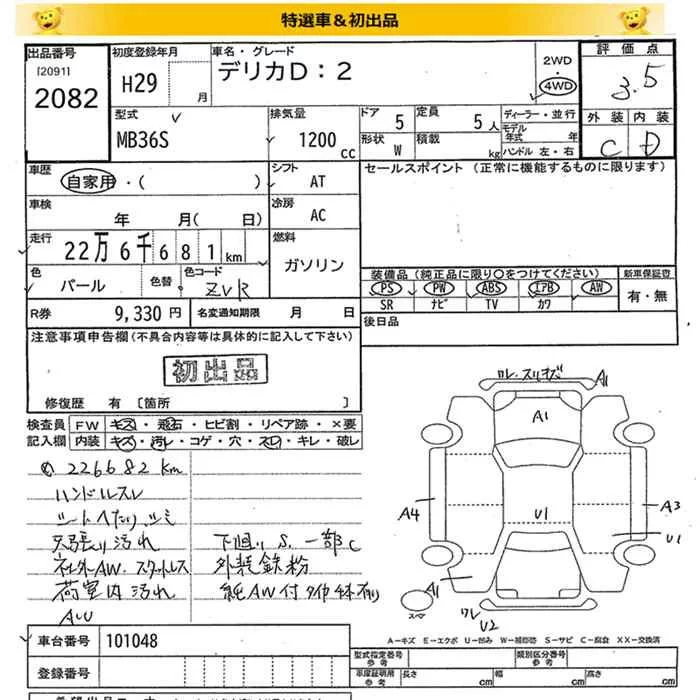 特選車＆初出品
出品番号
120911
2082
初度登録年月
H29
月
車名・グレード
デリカD：2
2WD
4WD
評価点
3.5
外装 内装
C D
型式
MB36S
排気量
1200 cc
ドア 5
形状 W
定員 5人
積載 kg
ディーラー・並行
モデル年式 年
ハンドル 左・右
車歴
自家用・( )
シフト
AT
セールスポイント (正常に機能するものに限ります)
車検
年 月( 日)
冷房
AC
走行
22万6千681km
燃料
ガソリン
色
パール
色替
色コード
ZVR
装備品 (純正品に限り○をつけてください)
PS PW ABS エアB AW
SR ナビ TV カワ
新車保証書
有・無
R券 9,330円
名変通知期限 月 日
後日品
注意事項申告欄(不具合内容等は具体的に記入して下さい)
初出品
修復歴 有 〔箇所 〕
検査員記入欄
FW キズ・飛石・ヒビ割・リペア跡・×要
内装 キズ・汚レ・コゲ・穴・スレ・キレ・破レ
226682km
ハンドルスレ
シートへたり、シミ
天張り汚れ
社外AW. スタッドレス
荷室内汚れ
下廻り S. 一部C
外装鉄粉
純AW付タイヤ4本有り
ワレ・スリキズ A1
A1
A4
U1
A3
U1
A1
スマ
ワレ
U2
A－キズ E－エクボ U－凹み W－補修跡 S－サビ C－腐食 XX－交換済
車台番号 101048
登録番号
型式指定番号 参考
類別区分番号 参考
車庫証明用 参考 長さ cm 幅 cm 高さ cm